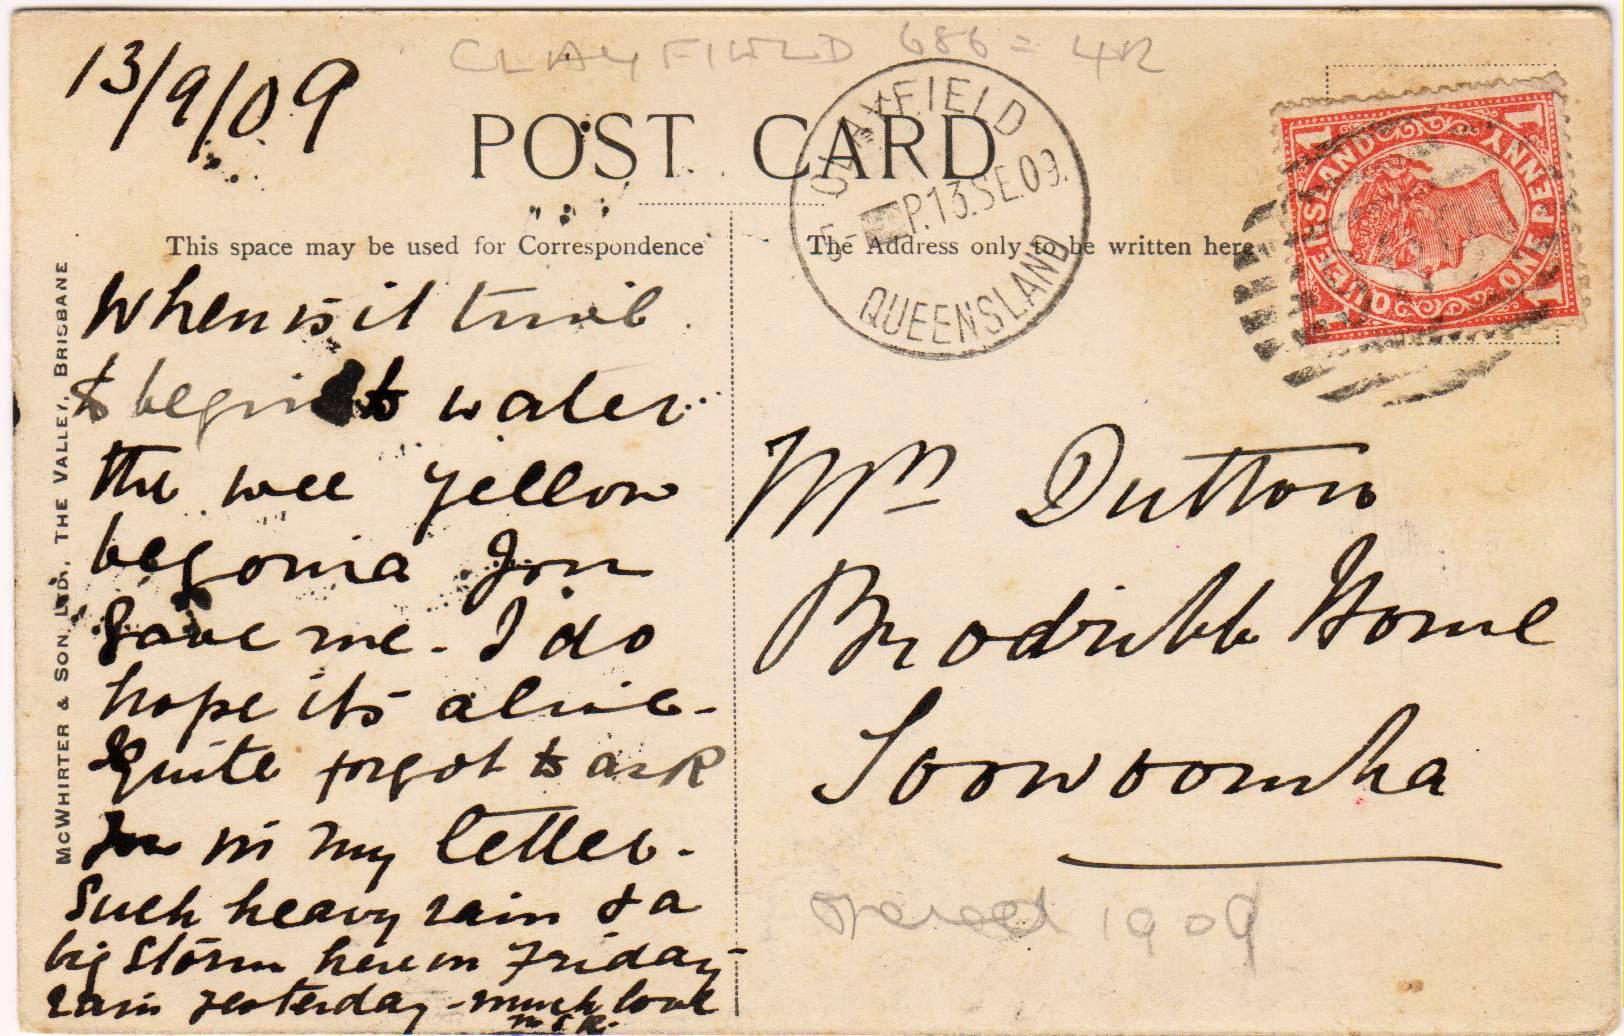 CLAYFIELD 686 = 4R
13/9/09
POST CARD
CLAYFIELD
5- P.13.SE.09.
QUEENSLAND
QUEENSLAND ONE PENNY
1 1 1 1
This space may be used for Correspondence
The Address only to be written here
McWHIRTER & SON LTD., THE VALLEY, BRISBANE
When is it time
to begin to water
the wee yellow
begonia you
gave me. I do
hope its alive -
Quite forgot to ask
you in my letter -
Such heavy rain & a
big storm here on Friday -
rain yesterday - much love
Mrs Dutton
Brodribb Home
Toowoomba
opened 1909